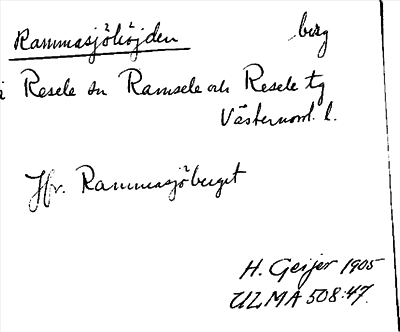 Rammasjöhöjden berg
i Resele sn Ramsele och Resele tg
Västernorrl. l.
Jfr. Rammasjöberget
H. Geijer 1905
ULMA 508:47.